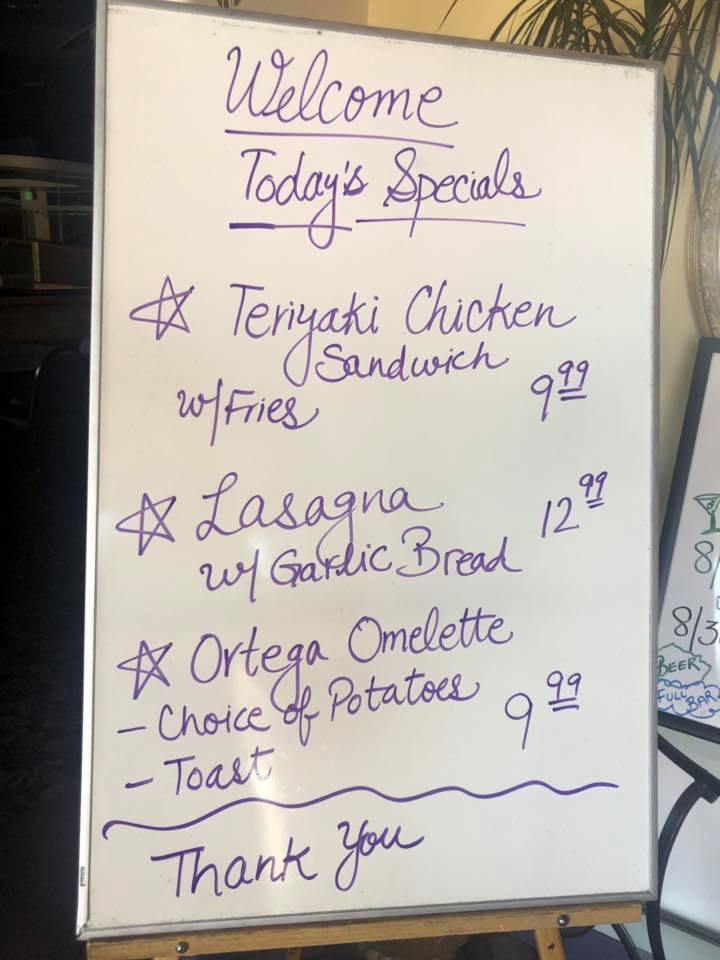 Welcome
Today's Specials
Teriyaki Chicken
Sandwich
w/Fries
9.99
Lasagna
12.99
w/ Garlic Bread
Ortega Omelette
- Choice of Potatoes
9.99
- Toast
Thank You
8/
8/3
BEER
FULL BAR